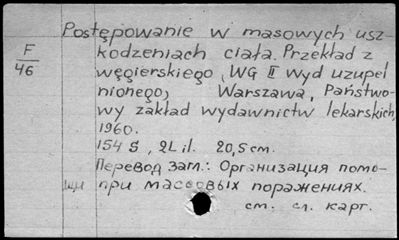 Postępowanie w masowych usz-
kodzeniach ciała. Przekład z
F
46
węgierskiego, WG II wyd uzupeł
nionego, Warszawa, Państwo-
wy zakład wydawnictw lekarskich,
1960.
154 S, 2L il. 20,5 cm.
Перевод загл.: Организация помо-
щи при массовых поражениях.
см. сл. карт.